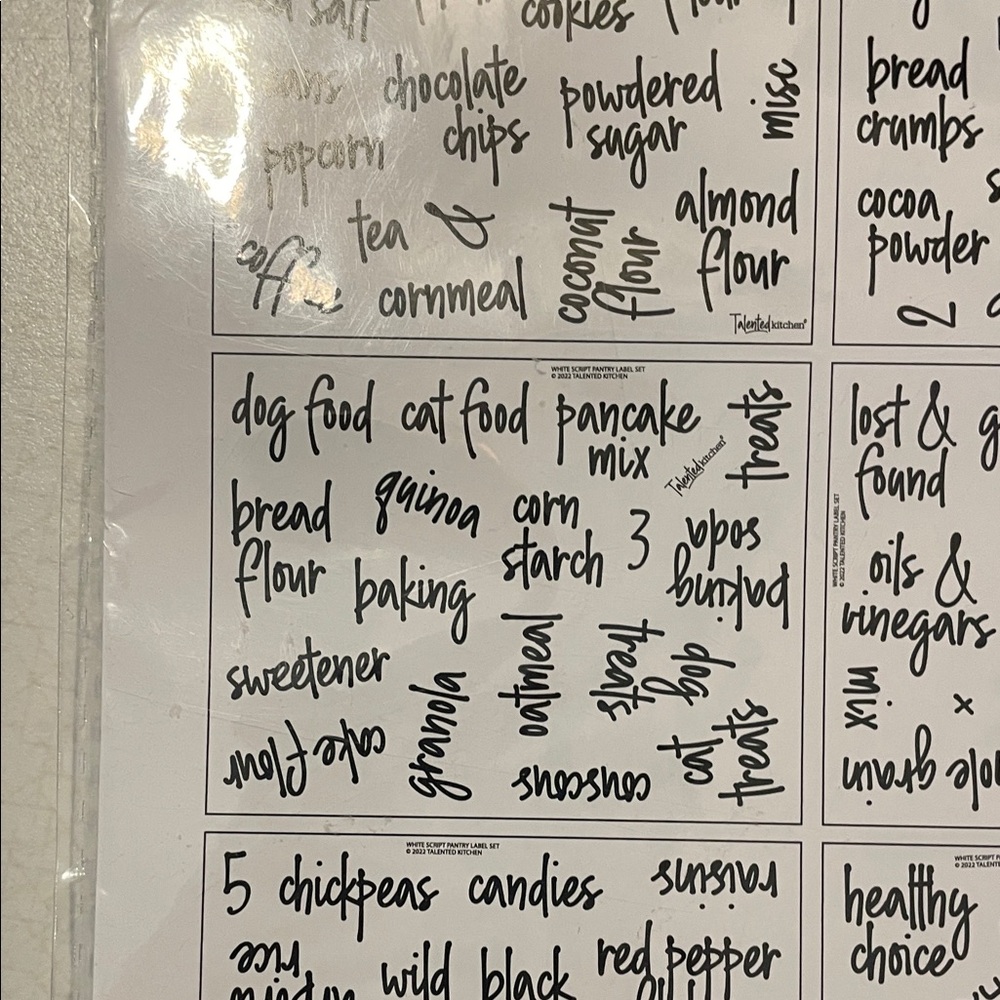 cookies
chocolate
chips
powdered
sugar
misc
popcorn
tea &
coffee
cornmeal
coconut
flour
almond
flour
Talented kitchen®
bread
crumbs
cocoa
powder
2
WHITE SCRIPT PANTRY LABEL SET
© 2022 TALENTED KITCHEN
dog food
cat food
pancake
mix
Talented kitchen®
treats
bread
flour
quinoa
corn
starch
3
baking
soda
baking
sweetener
granola
oatmeal
dog
treats
cake flour
couscous
cat
treats
WHITE SCRIPT PANTRY LABEL SET
© 2022 TALENTED KITCHEN
lost &
found
oils &
vinegars
mix
x
grain
WHITE SCRIPT PANTRY LABEL SET
© 2022 TALENTED KITCHEN
5
chickpeas
candies
raisins
rice
wild
black
red pepper
WHITE SCRIPT P
© 2022 TALENTE
healthy
choice